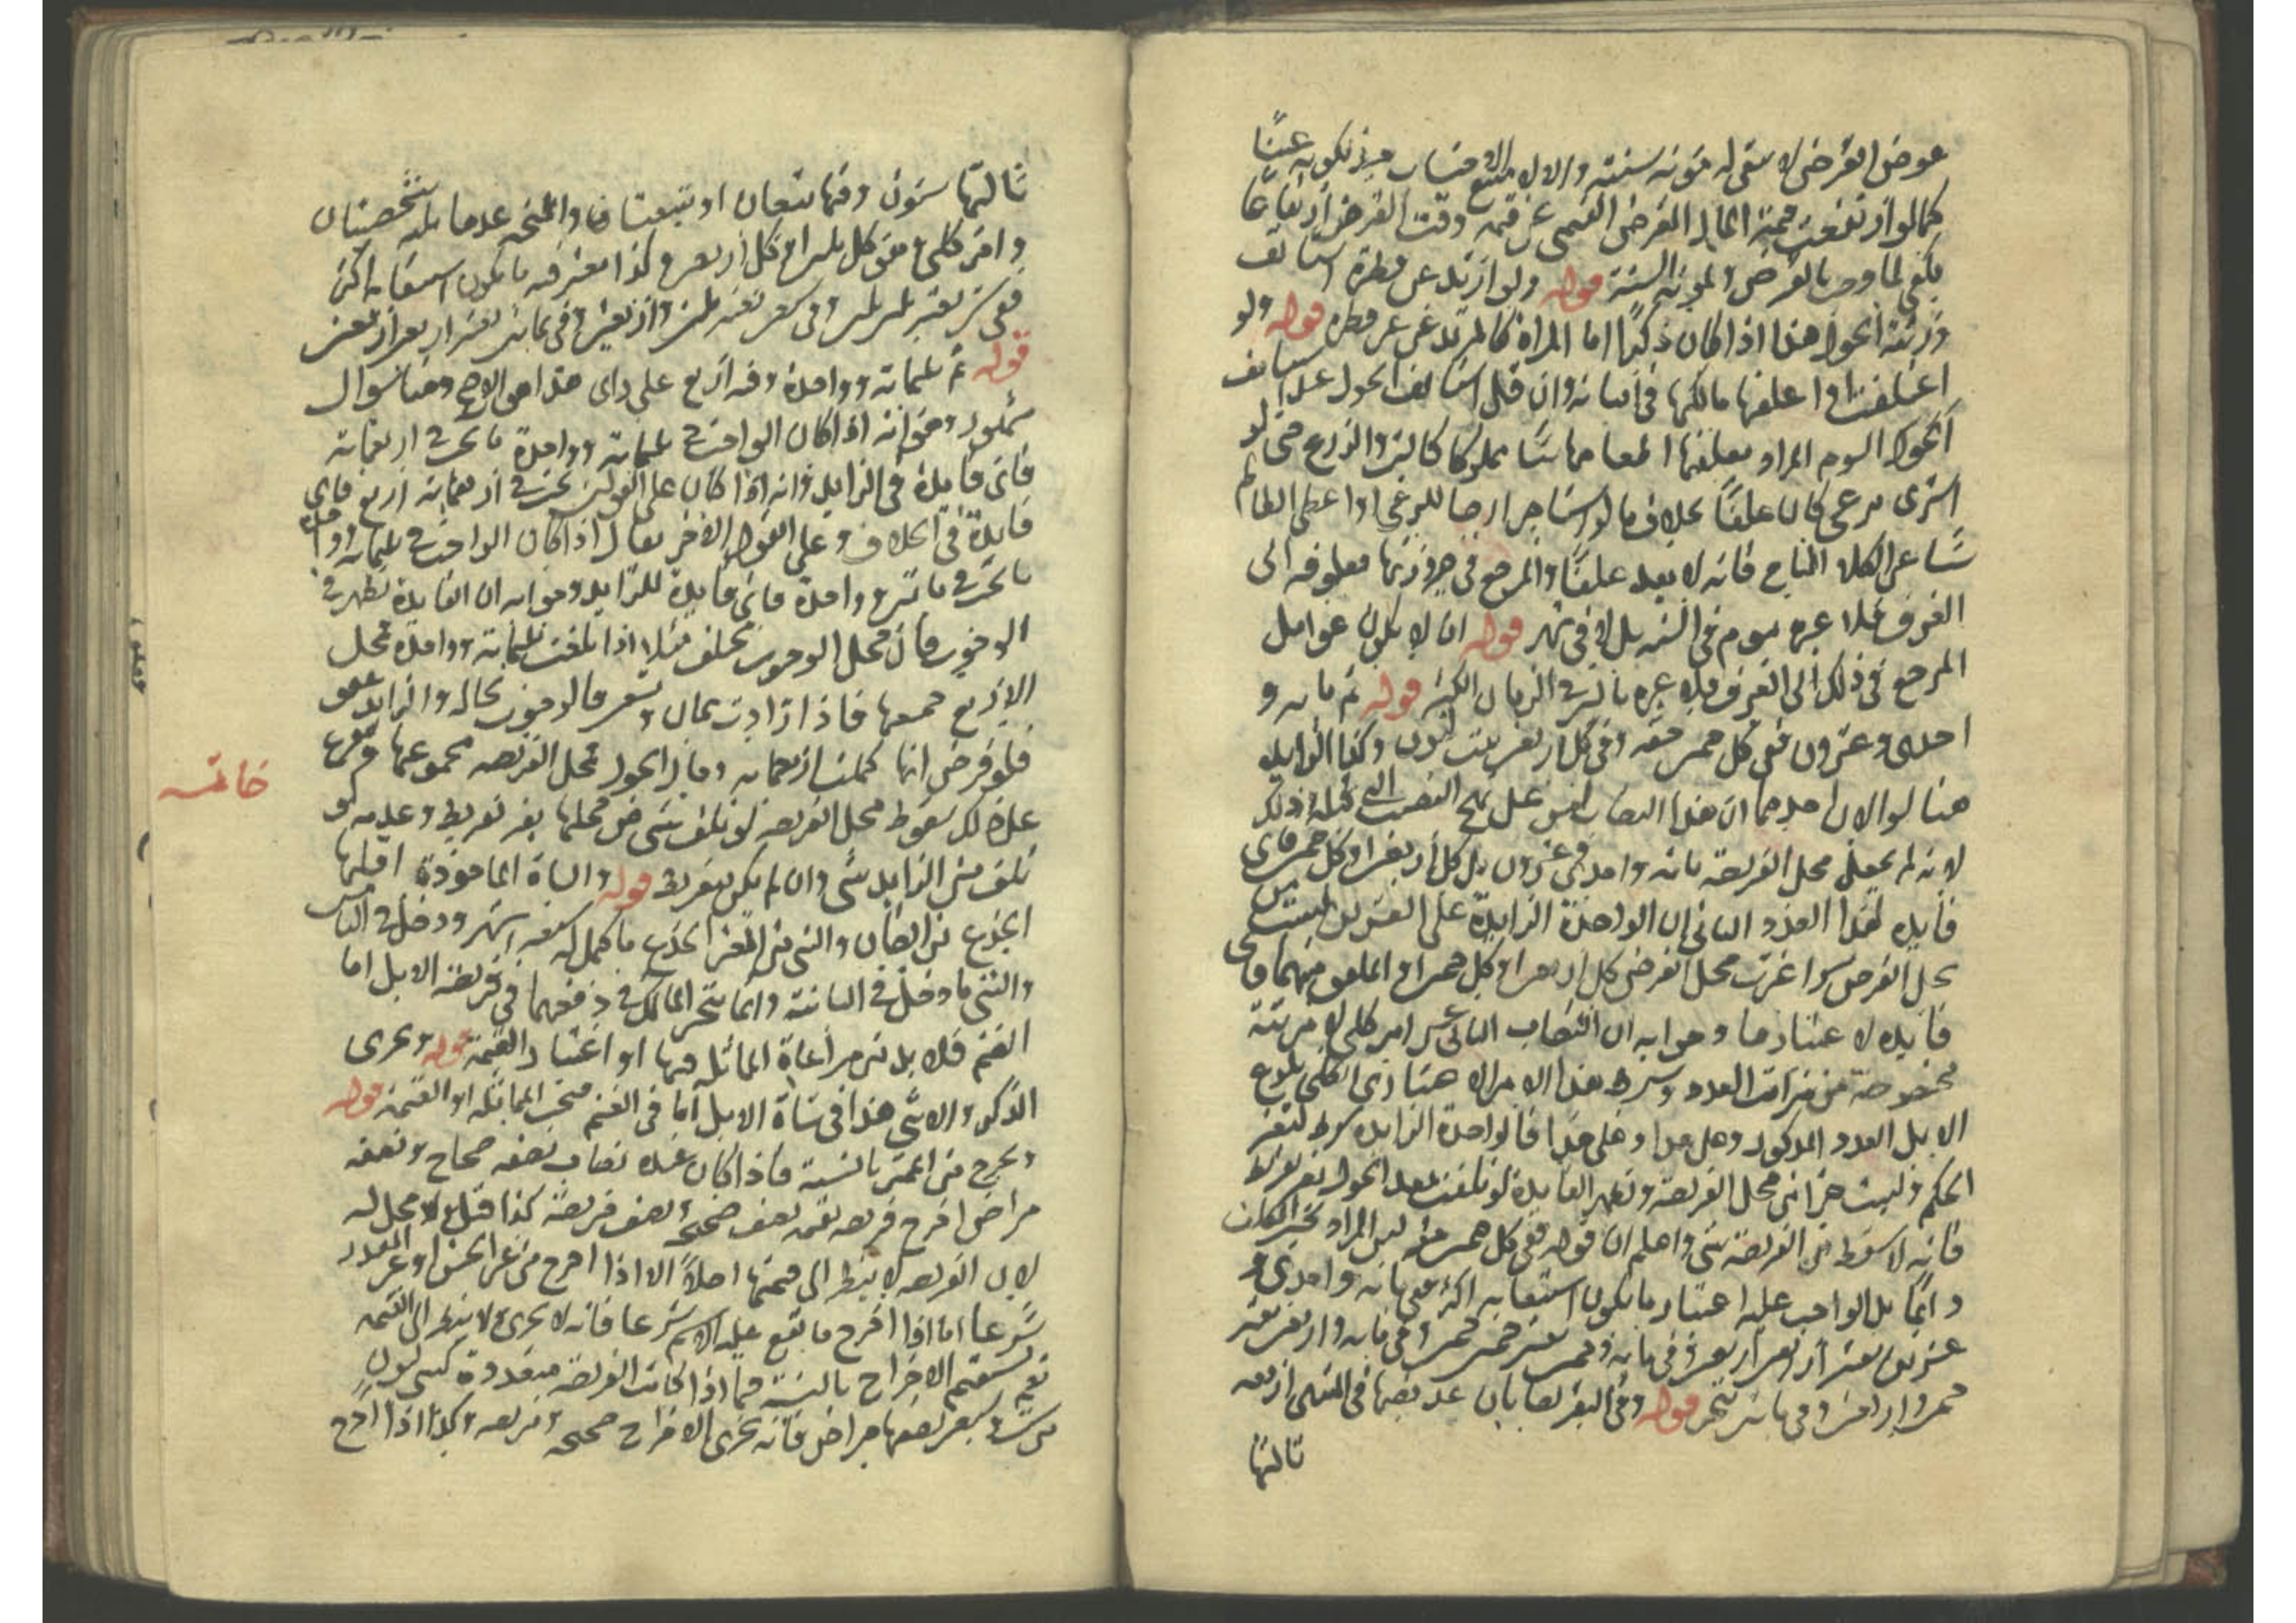 عوض القرض لا يبقى له مؤنة سنته والا لا منع الاحتساب حينئذ لكونه غنيا
كما لو ارتفعت قيمة المال المقرض القيمى عن قيمته وقت القرض ارتفاعا
يكفى لما وجب بالقرض المونة السنة قوله ولو ارتد عن فطرة استانف
ورثته الحول هذا اذا كان ذكرا اما المراة كالمرتد عن غير فطرة قوله ولو
اعتلفت او اعلفها مالكها فى اثنائه وان قل استانف الحول عند
الحول اليوم المراد بعلفها اطعامها شيئا مملوكا كالتبن والزرع حتى لو
اشترى مرعى كان علفا بخلاف ما لو استاجر ارضا للرعى او اعطى الظالم
شيئا عن الكلاء المباح فانه لا يعد علفا والمرجع فى صيرورتها معلوفه الى
العرف فلا عبرة بيوم فى السنة بل فى شهر قوله ان لا يكون عوامل
المرجع فى ذلك الى العرف فلا عبرة بالنادر فى الزمان الكثير قوله ثم مائة و
احدى وعشرون ففى كل خمسين حقه وفى كل اربعين بنت لبون وكذا الزايد
هنا سوالان احدهما ان هذا النصاب ليس على نهج النصب التى قبله اذ ذلك
لانه لم يجعل محل الفريضة مائة واحدى وعشرون بل كل اربعين او كل خمسين فاى
فايده لهذا العدد الثانى ان الواحدة الزايدة على العشرين ليست من
محل الفرض سواء اعتبرت محل الفرض كل اربعين او كل خمسين او الملفق منهما فاى
فايده لاعتبارها وجوابه ان النصاب الثانى عشر امر كلى لا مرتبة
مخصوصة من مراتب العدد وشرط هذا الامر الا هنا ذى الكلى بلوغ
الابل العدد المذكور وعلى هذا فالواحدة الزايدة شرط لتغير
الحكم وليست جزا من محل الفريضة وتظهر الفايدة لو تلفت بعد الحول بغير تفريط
فانه لا يسقط من الفريضة شى واعلم ان قوله ففى كل خمسين حقه ليس المراد تخيير المالك
وانما بل الواجب عليه اعتبار ما يكون استيعابه اكثر ففى مائة واحدى و
عشرين يعتبر اربعين اربعين وفى مائة وخمسين يعتبر خمسين خمسين وفى مائة واربعين يعتبر
خمسين واربعين وفى مائتين يتخير قوله وفى البقر نصابان عد نصبها فى المنتهى اربعه
ثالثها
ثالثها ستون وفيها تبيعان او تبيعتان والمنحه عدها بل شخصيتان
وامر كلى هو كل ثلثين او كل اربعين وكذا يعتبر فيه ما يكون استيعابه اكثر
ففى ستين يعتبر ثلثين ثلثين وفى سبعين يعتبر ثلثين واربعين وفى ثمانين يعتبر اربعين اربعين
قوله ثم ثلثمائة وواحدة وفيه اربع على راى هذا هو الاصح وهنا سوال
مشهور وهو انه اذا كان الواجب فى ثلثمائة وواحدة ما يجب فى اربعمائة
فاى فايدة فى الزايد وانه اذا كان على القولين يجب فى اربعمائة اربع فاى
فايدة فى الخلاف وعلى القول الاخر يقال اذا كان الواجب فى ثلثمائة وواحدة
ما يجب فى مائتين وواحدة فاى فايدة للزايد وجوابه ان الفايدة تظهر فى
الوجوب فان محل الوجوب مختلف مثلا اذا بلغت ثلثمائة وواحدة محل
الاربع جميعها فاذا زادت ثمان وتسعين فالوجوب بحاله والزايد عفو
فلو فرض انها كملت اربعمائة وحال الحول فمحل الفريضه مجموعها وتفرع
على ذلك سقوط محل الفريضه لو تلف شى من محلها بغير تفريط وعدمه لو
تلف من الزايد شى وان لم يكن بتفريط قوله والشاة الماخوذة اقلها
الجذع من الضان والثنى من المعز الجذع ما كمل له سبعه اشهر ودخل فى الثامن
والثنى ما دخل فى الثانية وانما يتخير المالك فى دفعهما فى فريضه الابل اما
الغنم فلا بد من مراعاة المماثله فيها او اعتبار القيمة قوله ويجزى
الذكر والانثى هذا فى شاة الابل اما فى الغنم فتجب المماثله او القيمة قوله
ويخرج من الممتزج بالنسبة فاذا كان عنده نصاب نصفه صحاح ونصفه
مراض اخرج فريضه بقيمه نصف صحيحة ونصف مريضة كذا قيل ولا محل له
لان الفريضه لا ينظر الى قيمتها اصلا الا اذا اخرج من غير الجنس او غير المقدر
شرعا اما اذا اخرج ما يقع عليه الاسم شرعا فانه لا يجزى ولا ينظر الى القيمه
نعم يستقيم الاخراج بالنسبة فيما اذا كانت الفريضة متعددة كبنتى لبون
من ست وسبعين نصفها مراض فانه يجزى الاخراج صحيحه ومريضه وكذا اذا اخرج
خاتمه